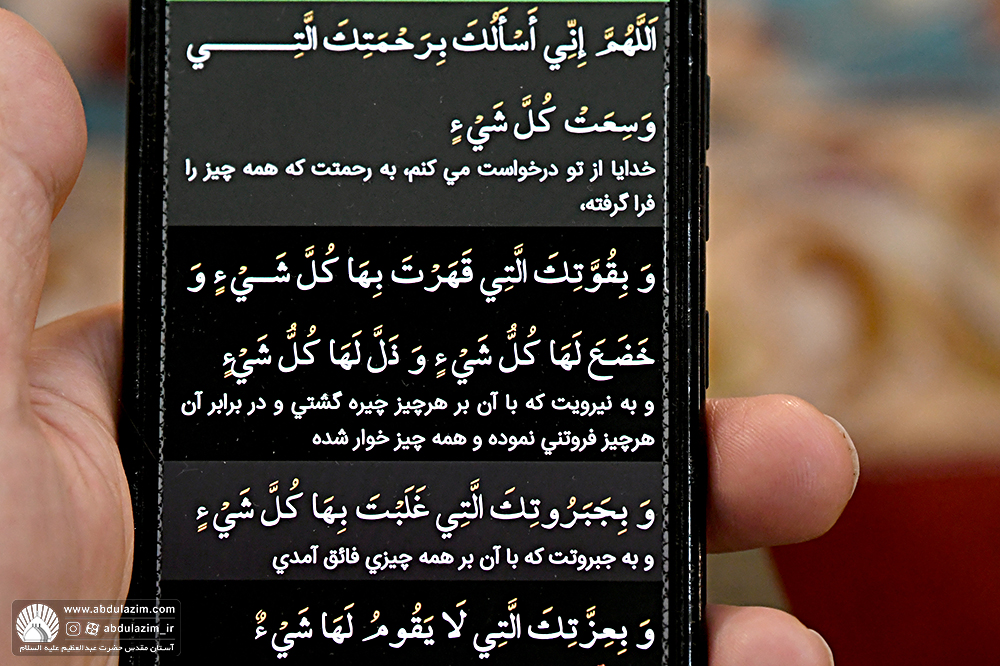 اَللَّهُمَّ إِنِّي أَسْأَلُكَ بِرَحْمَتِكَ الَّتِـــــــــي
وَسِعَتْ كُلَّ شَيْءٍ
خدايا از تو درخواست مي كنم، به رحمتت كه همه چيز را
فرا گرفته،
وَ بِقُوَّتِكَ الَّتِي قَهَرْتَ بِهَا كُلَّ شَـيْءٍ وَ
خَضَعَ لَهَا كُلُّ شَيْءٍ وَ ذَلَّ لَهَا كُلُّ شَيْءٍ
و به نيرويت كه با آن بر هرچيز چيره گشتي و در برابر آن
هرچيز فروتني نموده و همه چيز خوار شده
وَ بِجَبَرُوتِكَ الَّتِي غَلَبْتَ بِهَا كُلَّ شَيْءٍ
و به جبروتت كه با آن بر همه چيزي فائق آمدي
وَ بِعِزَّتِكَ الَّتِي لَا يَقُومُ لَهَا شَيْءٌ
www.abdulazim.com
abdulazim_ir
آستان مقدس حضرت عبدالعظیم علیه السلام